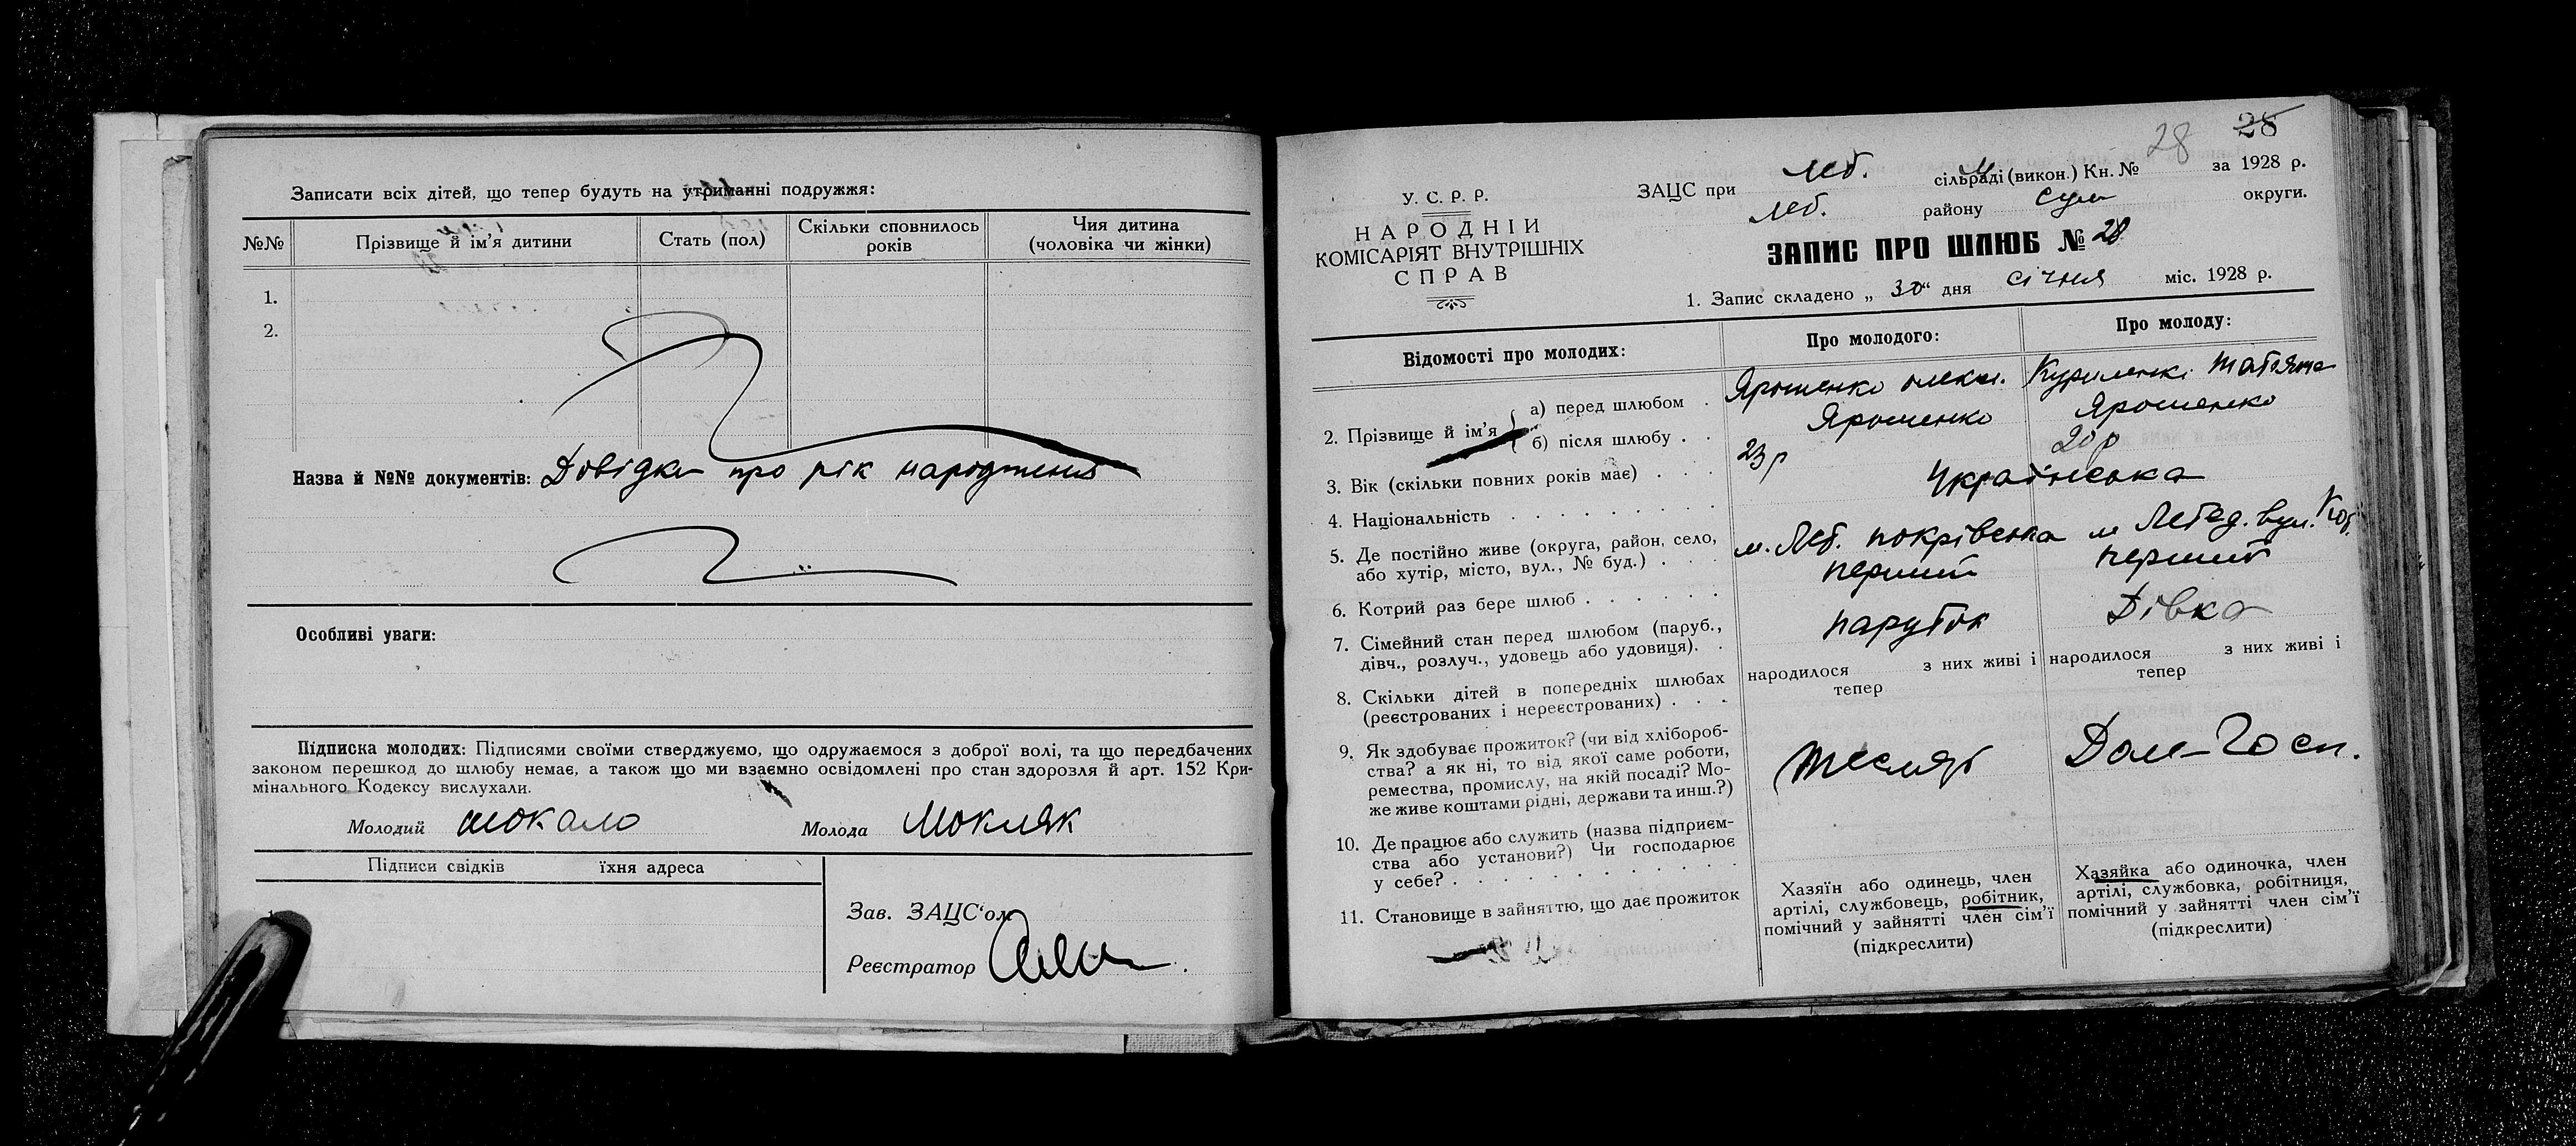 Записати всіх дітей, що тепер будуть на утриманні подружжя:
№№ Прізвище й ім'я дитини Стать (пол) Скільки сповнилось років Чия дитина (чоловіка чи жінки)
1.
2.
Назва й №№ документів: Довідки про рік народження
Особливі уваги:
Підписка молодих: Підписями своїми стверджуємо, що одружаємося з доброї волі, та що передбачених
законом перешкод до шлюбу немає, а також що ми взаємно освідомлені про стан здоровля й арт. 152 Кри-
мінального Кодексу вислухали.
Молодий Молода
Підписи свідків їхня адреса
1.
Зав. ЗАЦС'ом
Реєстратор
28 28
У. С. Р. Р.
НАРОДНІЙ
КОМІСАРІЯТ ВНУТРІШНІХ
СПРАВ
ЗАЦС при Леб. М сільраді (викон.) Кн. № за 1928 р.
Леб. району Сум округи.
ЗАПИС ПРО ШЛЮБ № 28
1. Запис складено „ 30 “ дня січня міс. 1928 р.
Відомості про молодих: Про молодого: Про молоду:
2. Прізвище й ім'я
а) перед шлюбом . Ярошенко олекс. Куриленкі Татяна
б) після шлюбу . . Ярошенко Ярошенко
3. Вік (скільки повних років має) . . . 23 р 20 р
4. Національність . . . . . . . . . Українська
5. Де постійно живе (округа, район, село,
або хутір, місто, вул., № буд.) . . . м. Леб. покрівська м Лебед. вул. Коб.
6. Котрий раз бере шлюб . . . . . . перший перший
7. Сімейний стан перед шлюбом (паруб.,
дівч., розлуч., удовець або удовиця). . парубок Дівка
8. Скільки дітей в попередніх шлюбах
(реєстрованих і нереєстрованих) . . .
народилося з них живі і тепер
народилося з них живі і тепер
9. Як здобуває прожиток? (чи від хлібороб-
ства? а як ні, то від якої саме роботи,
ремества, промислу, на якій посаді? Мо-
же живе коштами рідні, держави та инш.?)
тесляр Дом-Госп.
10. Де працює або служить (назва підприєм-
ства або установи?) Чи господарює
у себе? . . . . . . . . . .
11. Становище в зайняттю, що дає прожиток
Хазяїн або одинець, член
артілі, службовець, робітник,
помічний у зайнятті член сім'ї
(підкреслити)
Хазяйка або одиночка, член
артілі, службовка, робітниця,
помічний у зайнятті член сім'ї
(підкреслити)